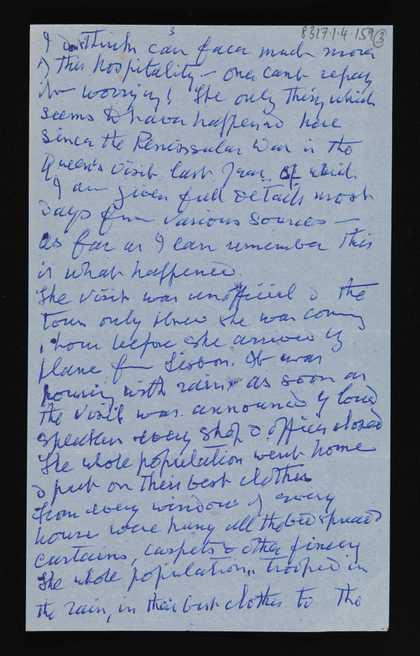 3
8317.1.4.159 3
I don't think can face much more
of this hospitality - one can't repay
it - worrying! The only thing which
seems to have happened here
since the Peninsular War is the
Queen's visit last year, of which
I am given full details most
days from various sources -
as far as I can remember this
is what happened.
The visit was unofficial & the
town only knew she was coming
1 hour before she arrived by
plane from Lisbon. It was
pouring with rain, as soon as
the visit was announced by loud
speaker every shop & office closed
The whole population went home
& put on their best clothes
From every window of every
house were hung all the bedspreads
curtains, carpets & other finery
The whole population trooped in
the rain, in their best clothes to the